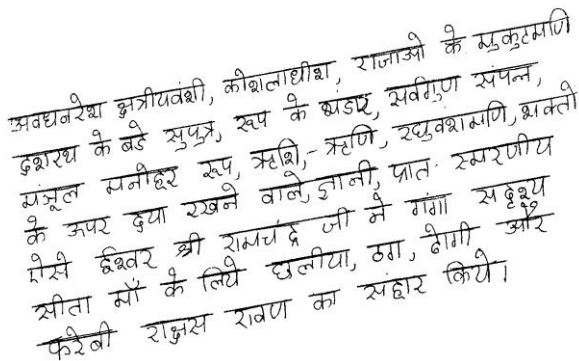 अवधनरेश क्षत्रीयवंशी, कोशलाधीश, राजाओ के मुकुटमणि
दशरथ के बडे सुपुत्र, रूप के भंडार, सर्वगुण संपन्न,
मंजूल मनोहर रूप, ऋशि,-ऋणि, रघुवंशमणि, भक्तो
के ऊपर दया रखने वाले, ज्ञानी, प्रातः स्मरणीय
ऐसे ईश्वर श्री रामचंद्र जी ने गंगा सदृश्य
सीता माँ के लिये छलीया, ठग, ढोगी और
फरेबी राक्षस रावण का संहार किये।